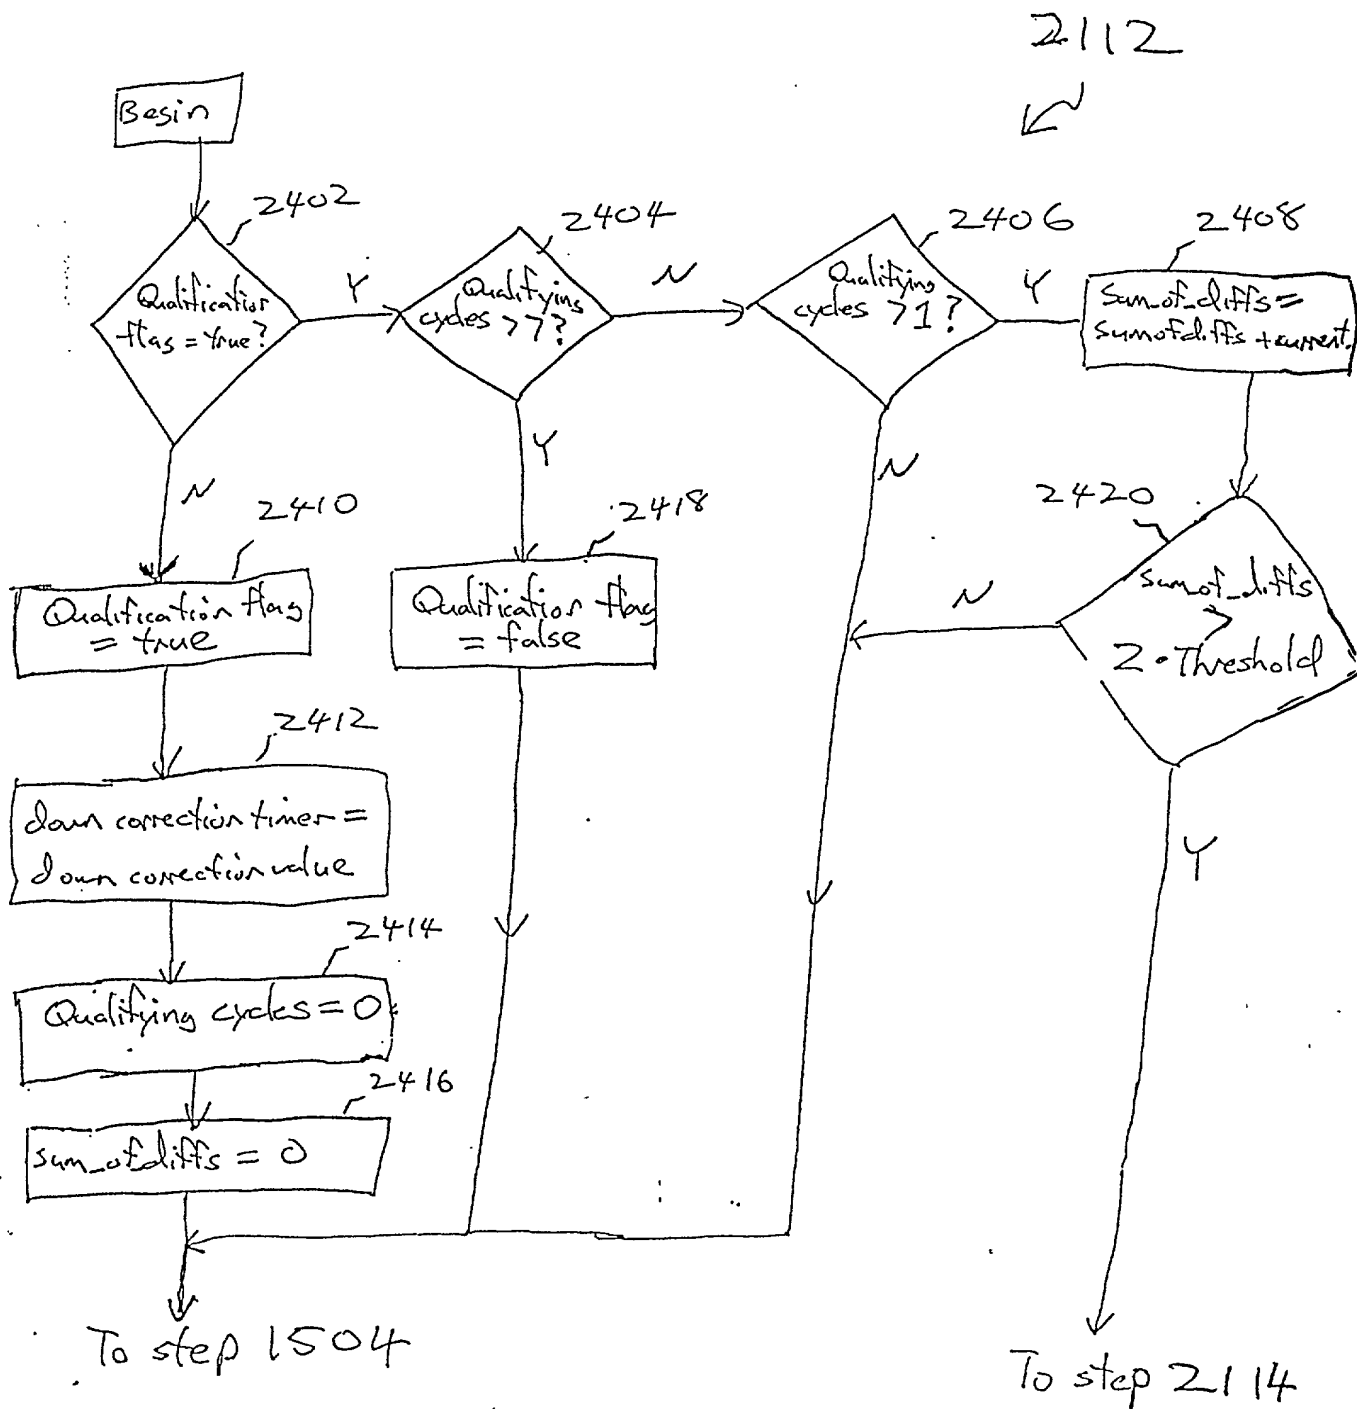 2112
Begin
2402
Qualification
flag = true?
Y
N
2404
Qualifying
cycles > 7?
N
Y
2406
Qualifying
cycles > 1?
Y
N
2408
Sum_of_diffs =
sumofdiffs + current.
2410
Qualification flag
= true
2418
Qualification flag
= false
2420
sumof_diffs
>
2 • Threshold
N
Y
2412
down correction timer =
down correction value
2414
Qualifying cycles = 0
2416
sum_of diffs = 0
To step 1504
To step 2114